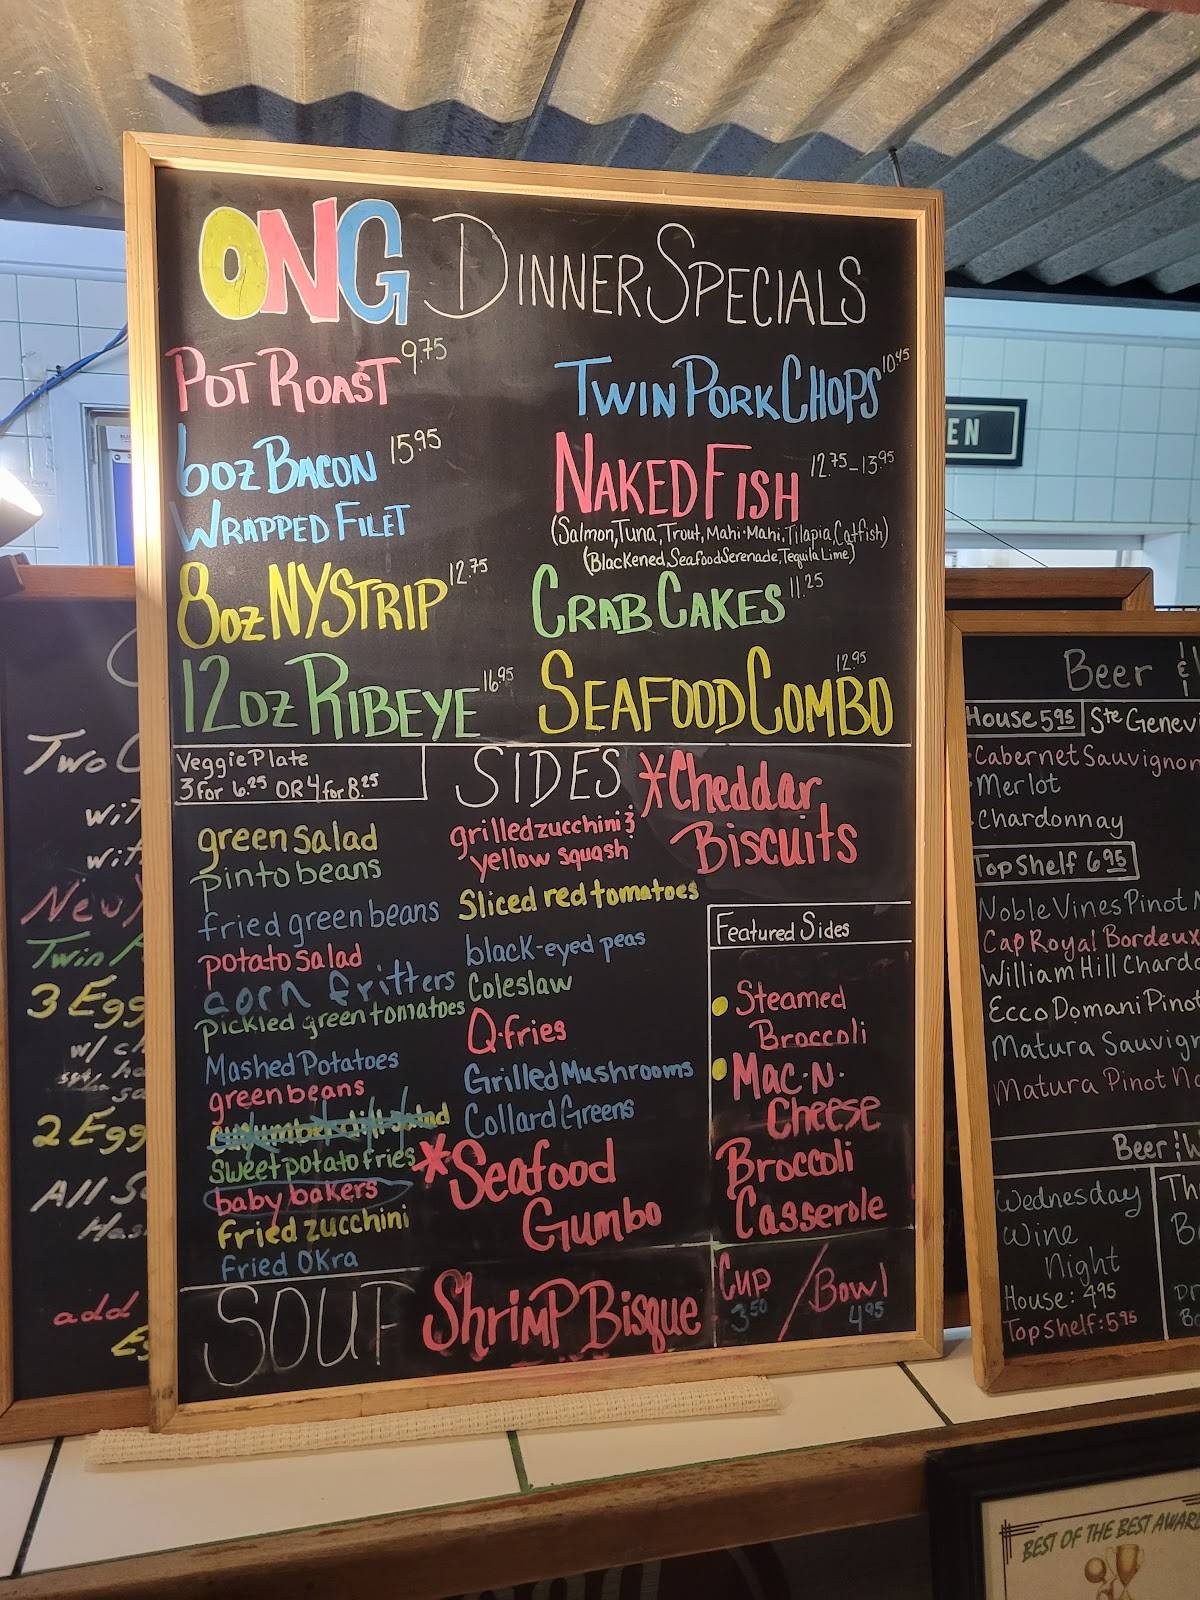 ONG DINNER SPECIALS
POT ROAST 9.75
6oz BACON 15.95
WRAPPED FILET
8oz NY STRIP 12.75
12oz RIBEYE 16.95
TWIN PORK CHOPS 10.45
NAKED FISH 12.75-13.95
(Salmon, Tuna, Trout, Mahi-Mahi, Tilapia, Catfish)
(Blackened, Seafood Serenade, Tequila Lime)
CRAB CAKES 11.25
SEAFOOD COMBO 12.95
Veggie Plate
3 for 6.25 OR 4 for 8.25
SIDES
*Cheddar
Biscuits
green salad
pinto beans
fried green beans
potato salad
corn fritters
pickled green tomatoes
Mashed Potatoes
green beans
cucumber dill salad
sweet potato fries
baby bakers
Fried zucchini
Fried OKra
grilled zucchini &
yellow squash
Sliced red tomatoes
black-eyed peas
Coleslaw
Q-fries
Grilled Mushrooms
Collard Greens
*Seafood
Gumbo
Featured Sides
Steamed
Broccoli
Mac-N-
Cheese
Broccoli
Casserole
SOUP Shrimp Bisque
Cup / Bowl
3.50 4.95
Two
wit
wit
New
Twin
3 Egg
w/
2 Egg
All S
Has
add
EN
Beer &
House 5.95
Ste Genev
Cabernet Sauvignon
Merlot
Chardonnay
Top Shelf 6.95
Noble Vines Pinot N
Cap Royal Bordeux
William Hill Chardo
Ecco Domani Pinot
Matura Sauvign
Matura Pinot No
Beer & W
Wednesday
Wine
Night
House: 4.95
Top Shelf: 5.95
Th
B
BEST OF THE BEST AWAR